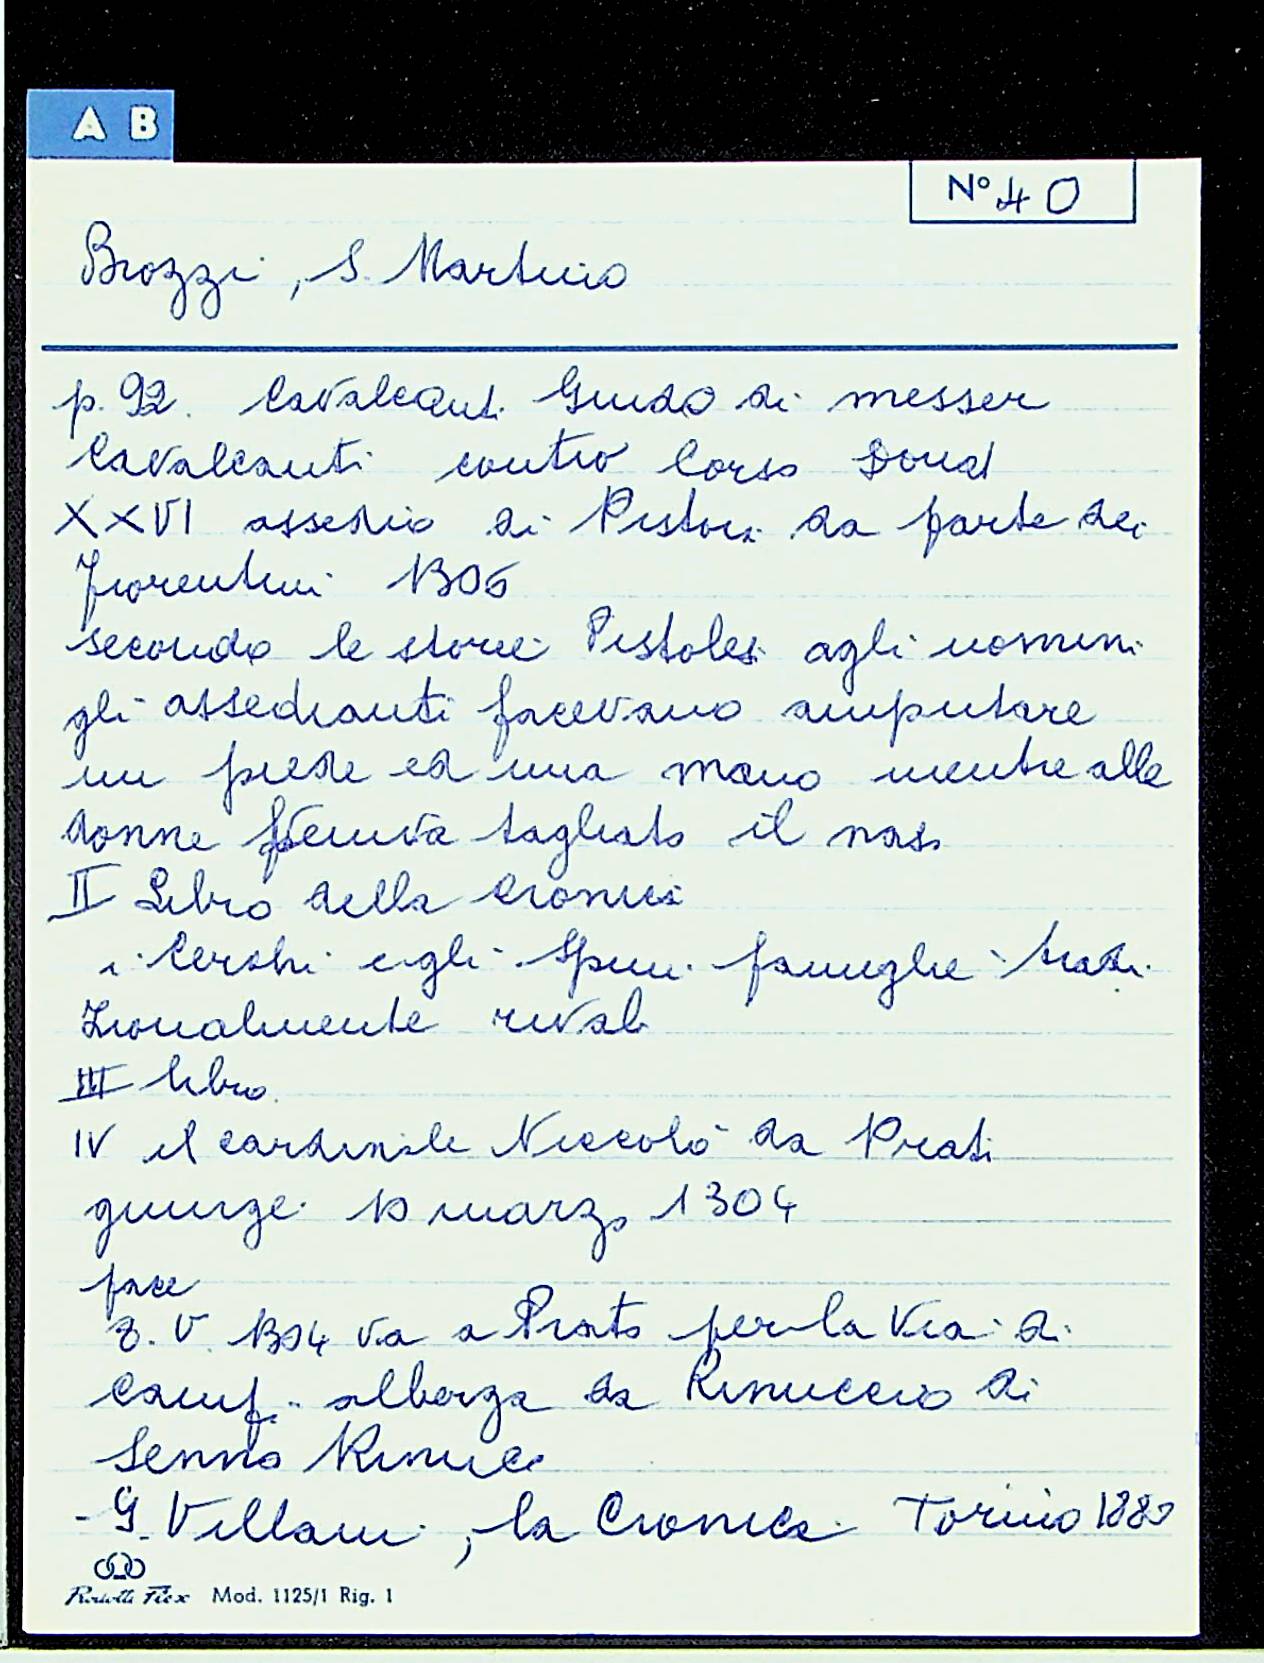 A B
N° 40
Brozzi, S. Martino
p. 92. Cavalcant. Guido di messer
Cavalcanti contro Corso Donat
XXVI assedio di Pistoi da parte dei
fiorentini 1306
secondo le storie Pistolesi agli uomini
gli assedianti facevano amputare
un piede ed una mano mentre alle
donne veniva tagliato il naso
II Libro della Cronica
i Cerchi e gli Spini famiglie tradi
zionalmente rivali
III libro.
IV il cardinale Niccolò da Prati
giunge 10 marzo 1304
pace
8. V. 1304 va a Prato per la Via di
Campi alberga da Rinuccio di
Senno Rinucci
- G. Villani, la Cronica Torino 1880
Flex Mod. 1125/1 Rig. 1